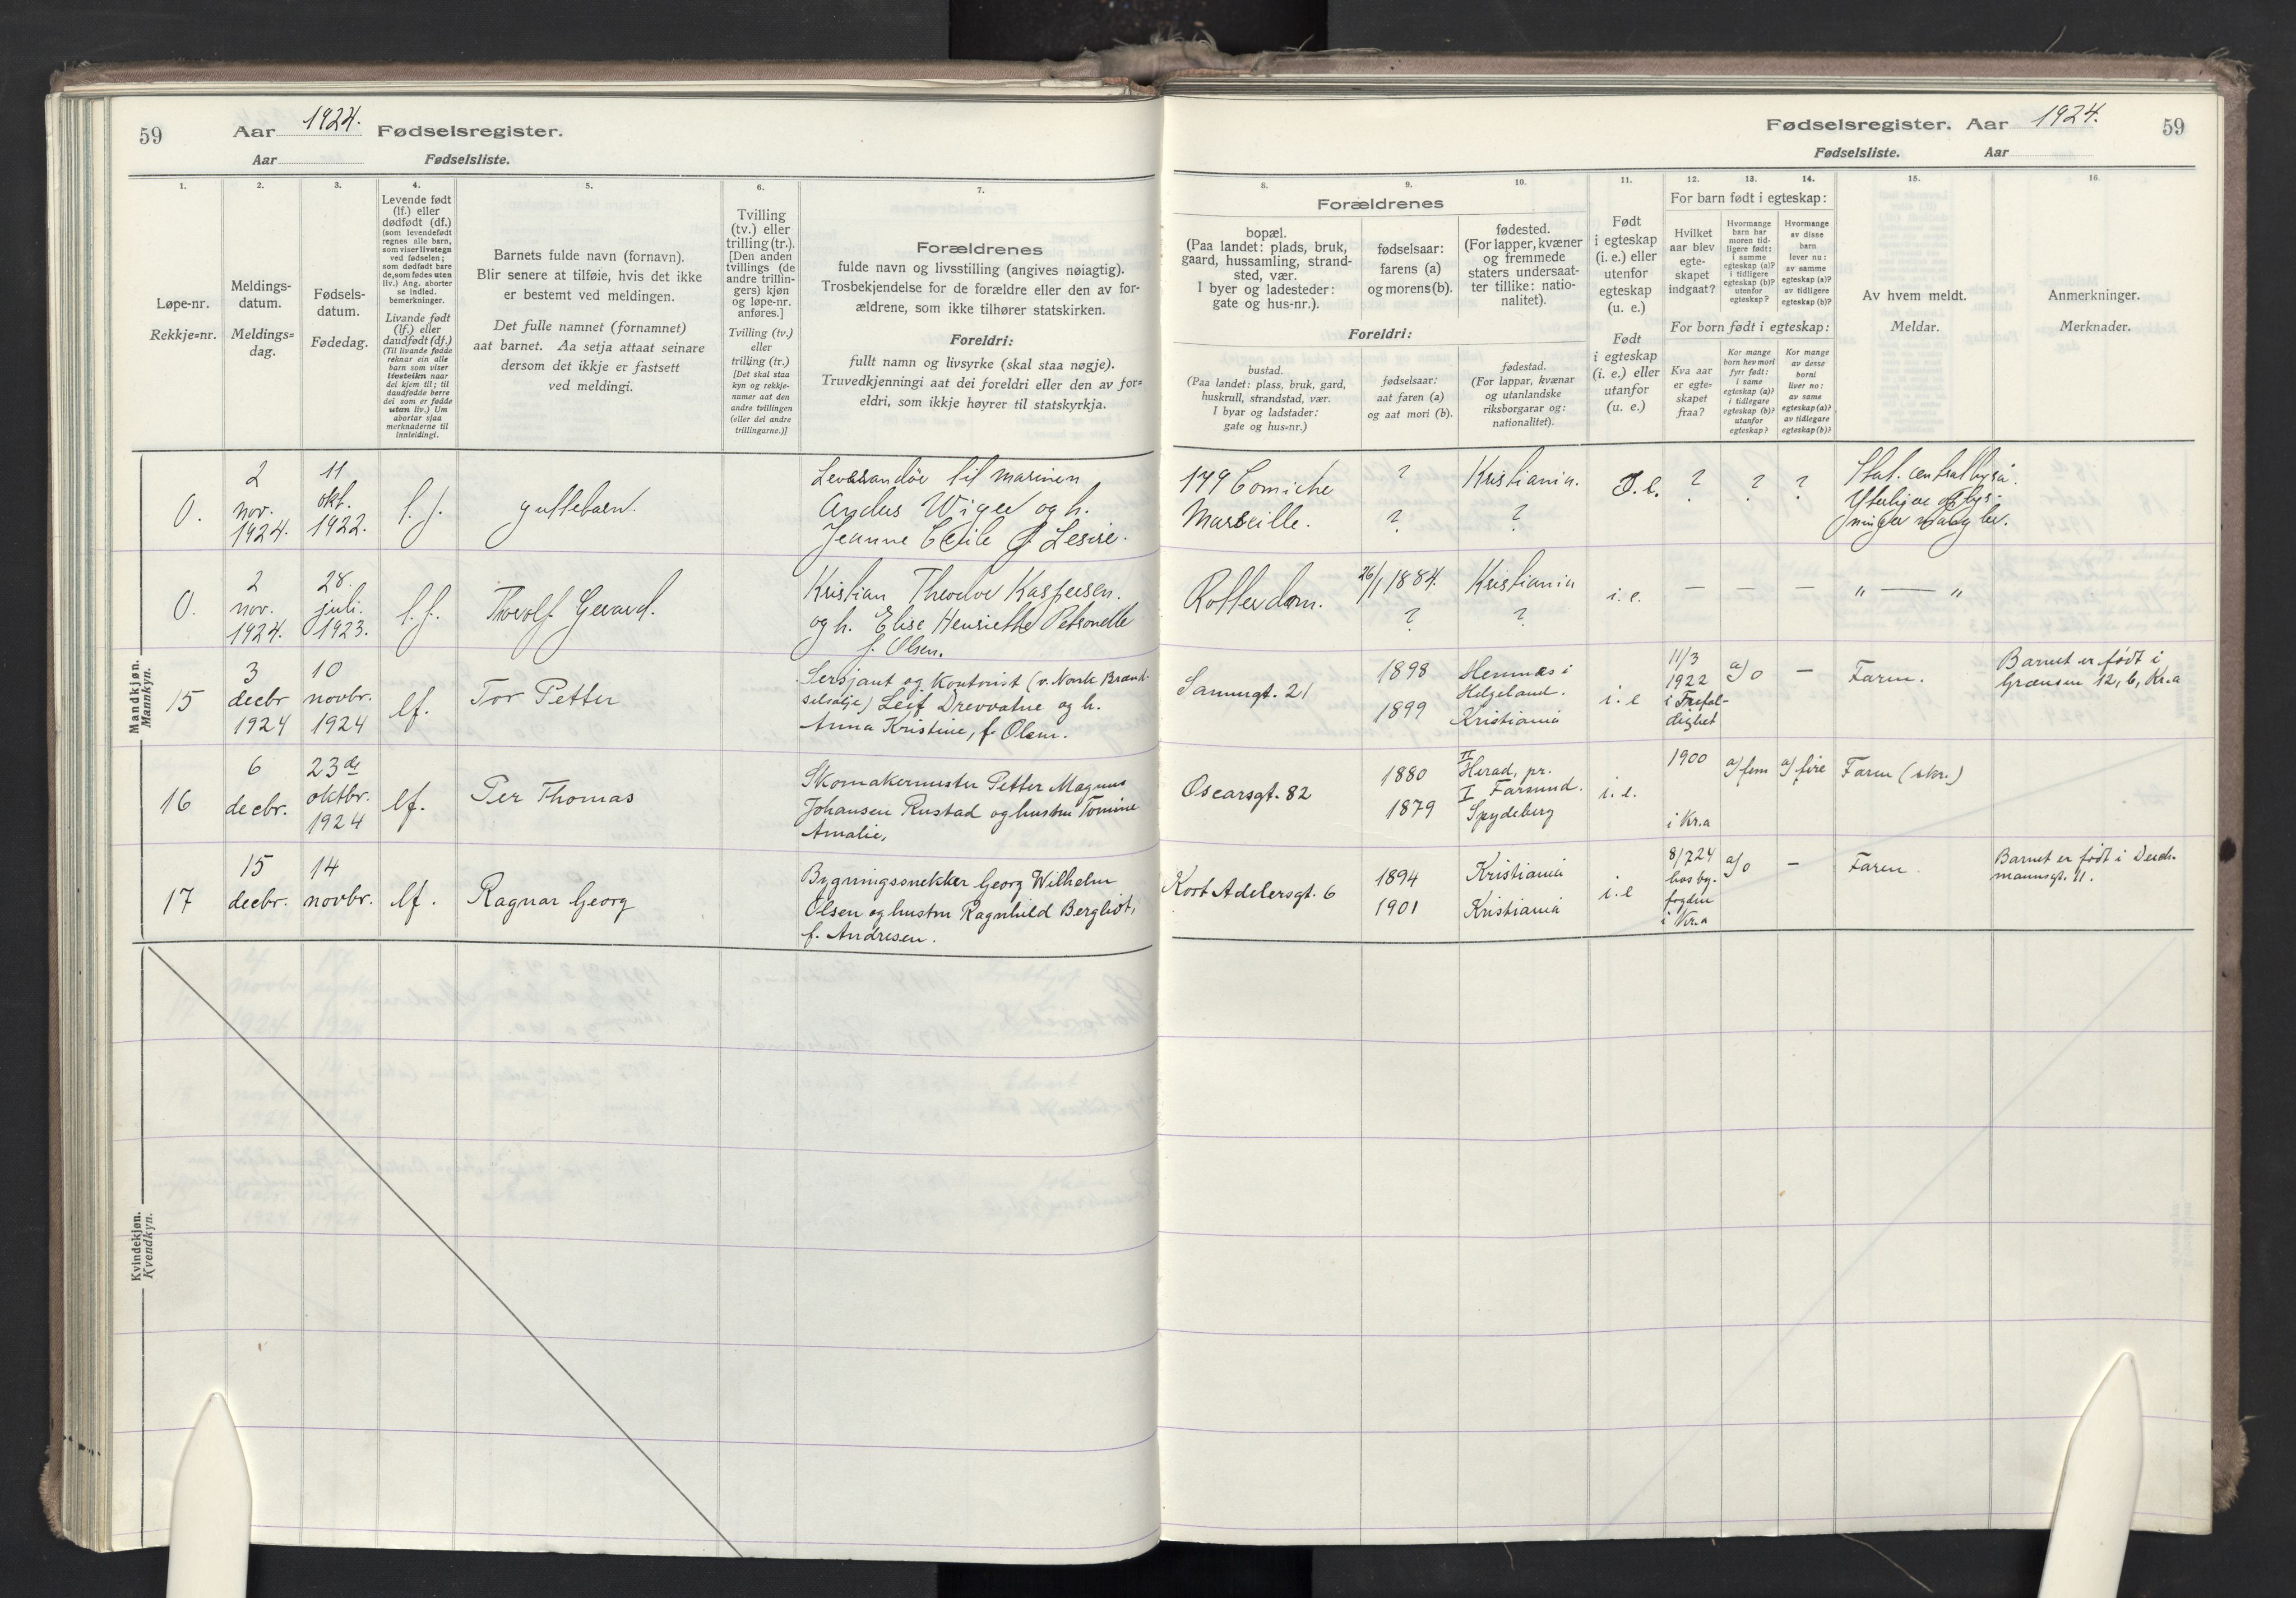 59
Aar 1924. Fødselsregister.
Aar Fødselsliste.
1. 2. 3. 4. 5. 6. 7.
Løpe-nr.
Rekkje=nr.
Meldings-
datum.
Meldings=
dag.
Fødsels-
datum.
Fødedag.
Levende født
(lf.) eller
dødfødt (df.)
(som levendefødt
regnes alle barn,
som viser livstegn
ved fødselen;
som dødfødt bare
de, som fødes uten
liv.) Ang. aborter
se indled.
bemerkninger.
Livande født
(lf.) eller
daudfødt (df.)
(Til livande fødde
reknar ein alle
barn som viser
livsteikn naar
dei kjem til; til
daudfødde berre
dei som er fødde
utan liv.) Um
abortar sjaa
merknaderne til
innleidingi.
Barnets fulde navn (fornavn).
Blir senere at tilføie, hvis det ikke
er bestemt ved meldingen.
Det fulle namnet (fornamnet)
aat barnet. Aa setja attaat seinare
dersom det ikkje er fastsett
ved meldingi.
Tvilling
(tv.) eller
trilling (tr.).
[Den anden
tvillings (de
andre trillin-
gers) kjøn
og løpe-nr.
anføres.]
Tvilling (tv.)
eller
trilling (tr.)
[Det skal staa
kyn og rekkje-
numer aat den
andre tvillingen
(eller dei andre
trillingarne.)]
Forældrenes
fulde navn og livsstilling (angives nøiagtig).
Trosbekjendelse for de forældre eller den av for-
ældrene, som ikke tilhører statskirken.
Foreldri:
fullt namn og livsyrke (skal staa nøgje).
Truvedkjenningi aat dei foreldri eller den av for=
eldri, som ikkje høyrer til statskyrkja.
Mandkjøn.
Mannkyn.
0.
2
nov.
1924.
11
okt.
1922.
l. f.
guttebarn.
til marinen
Anders Wiger og h.
Jeanne Cecile f. Lesire.
0.
2
nov.
1924.
28.
juli.
1923.
l. f.
Thorolf Gerard.
Kristian Theodor Kaspersen.
og h. Elise Henriette Petronelle
f. Olsen.
15
3
decbr
1924
10
novbr.
1924
lf.
Tor Petter
Sersjant og Kontorist (v. Norsk Brænd-
selsolje) Leif Drevvatne og h.
Anna Kristine, f. Olsen.
16
6
decbr.
23de
oktbr.
1924
lf.
Per Thomas
Skomakermester Petter Magnus
Johansen Rustad og hustru Tomine
Amalie,
17
15
decbr.
14
novbr.
lf.
Ragnar Georg
Bygningssnekker Georg Wilhelm
Olsen og hustru Ragnhild Bergliot,
f. Andresen.
Kvindekjøn.
Kvendkyn.
Fødselsregister. Aar 1924.
59
Fødselsliste. Aar
8. 9. 10. 11. 12. 13. 14. 15. 16.
Forældrenes
bopæl.
(Paa landet: plads, bruk,
gaard, hussamling, strand-
sted, vær.
I byer og ladesteder:
gate og hus-nr.).
fødselsaar:
farens (a)
og morens (b).
fødested.
(For lapper, kvæner
og fremmede
staters undersaat-
ter tillike: natio-
nalitet).
Foreldri:
bustad.
(Paa landet: plass, bruk, gard,
huskrull, strandstad, vær.
I byar og ladstader:
gate og hus=nr.)
fødselsaar:
aat faren (a)
og aat mori (b).
fødestad.
(For lappar, kvænar
og utanlandske
riksborgarar og:
nationalitet).
Født
i egteskap
(i. e.) eller
utenfor
egteskap
(u. e.)
Født
i egteskap
(i. e.) eller
utanfor
(u. e.)
For barn født i egteskap:
Hvilket
aar blev
egte-
skapet
indgaat?
Hvormange
barn har
moren tid-
ligere født:
i samme
egteskap (a)?
i tidligere
egteskap (b)?
utenfor
egteskap?
Hvormange
av disse
barn
lever nu:
av samme
egteskap (a)?
av tidligere
egteskap (b)?
For born født i egteskap:
Kva aar
er egte=
skapet
fraa?
Kor mange
born hev mori
fyrr født:
i same
egteskap (a)?
i tidlegare
egteskap (b)?
utanfor
egteskap?
Kor mange
av desse
borni
liver no:
av same
egteskap (a)?
av tidlegare
egteskap (b)?
Av hvem meldt.
Meldar.
Anmerkninger.
Merknader.
179 Corniche
Marseille.
?
?
Kristiania.
?
I. e.
? ? ?
Stat. centralbyrå.
Yterligere oplys-
ninger
Rotterdam.
26/1 1884.
?
Kristiania
?
i. e.
— — — " — "
Sannergt. 21
1898
1899
Hemnes i
Helgeland.
Kristiania
i. e
11/3
1922
i Trefol-
dighet
a/0
—
Faren.
Barnet er født i
Grænsen 12, b, Kr.a
Oscarsgt. 82
1880
1879
II
Herad, pr.
I Farsund.
Spydeberg
i. e.
1900
i Kr.a
a/ fem
a/ fire
Faren (skr.)
Kort Adelersgt. 6
1894
1901
Kristiania
Kristiania
i. e
8/7 24
hos by-
fogden
i Kr.a
a/0
—
Faren.
Barnet er født i Deich-
mannsgt. 11.